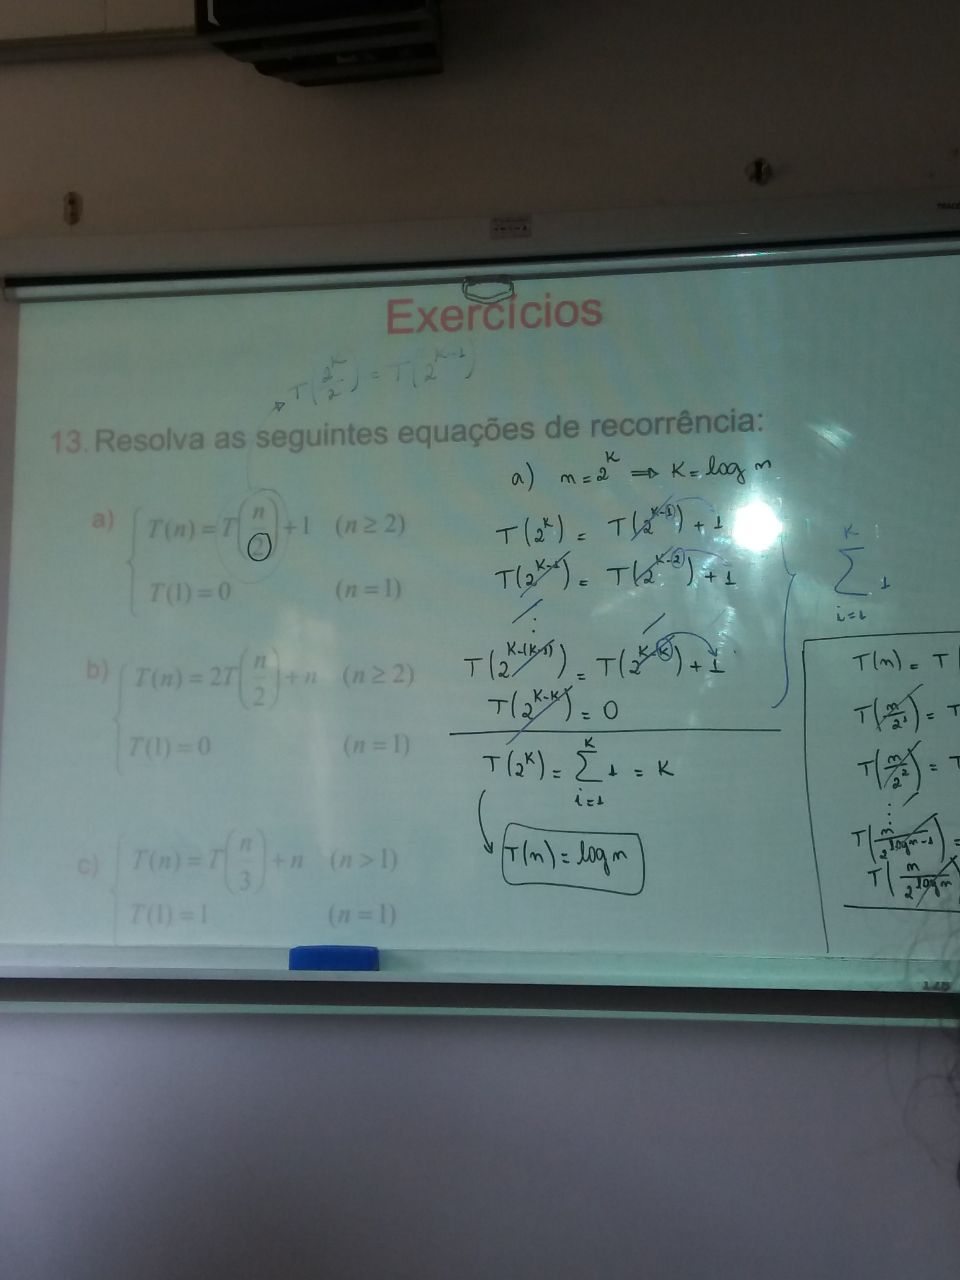 Exercícios
T(2^K/2) = T(2^(K-1))
13. Resolva as seguintes equações de recorrência:
a) T(n) = T(n/2) + 1 (n ≥ 2)
T(1) = 0 (n = 1)
b) T(n) = 2T(n/2) + n (n ≥ 2)
T(1) = 0 (n = 1)
c) T(n) = T(n/3) + n (n > 1)
T(1) = 1 (n = 1)
a) n = 2^K ⇒ K = log n
T(2^K) = T(2^(K-1)) + 1
T(2^(K-1)) = T(2^(K-2)) + 1
⋮
T(2^(K-(K-1))) = T(2^(K-K)) + 1
T(2^(K-K)) = 0
T(2^K) = ∑_{i=1}^{K} 1 = K
T(n) = log n
∑_{i=1}^{K} 1
T(n) = T
T(n/2^1) = T
T(n/2^2) = T
⋮
T(n/2^(log n-1)) =
T(n/2^(log n))